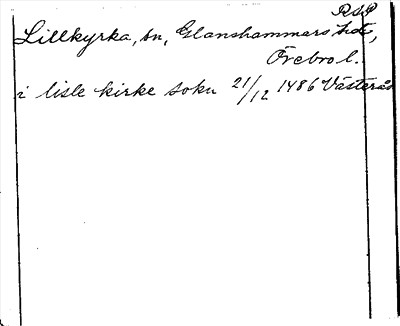 RSP
Lillkyrka, sn, Glanshammars hd,
Örebro l.
i lisle kirke sokn 21/12 1486 Västerås